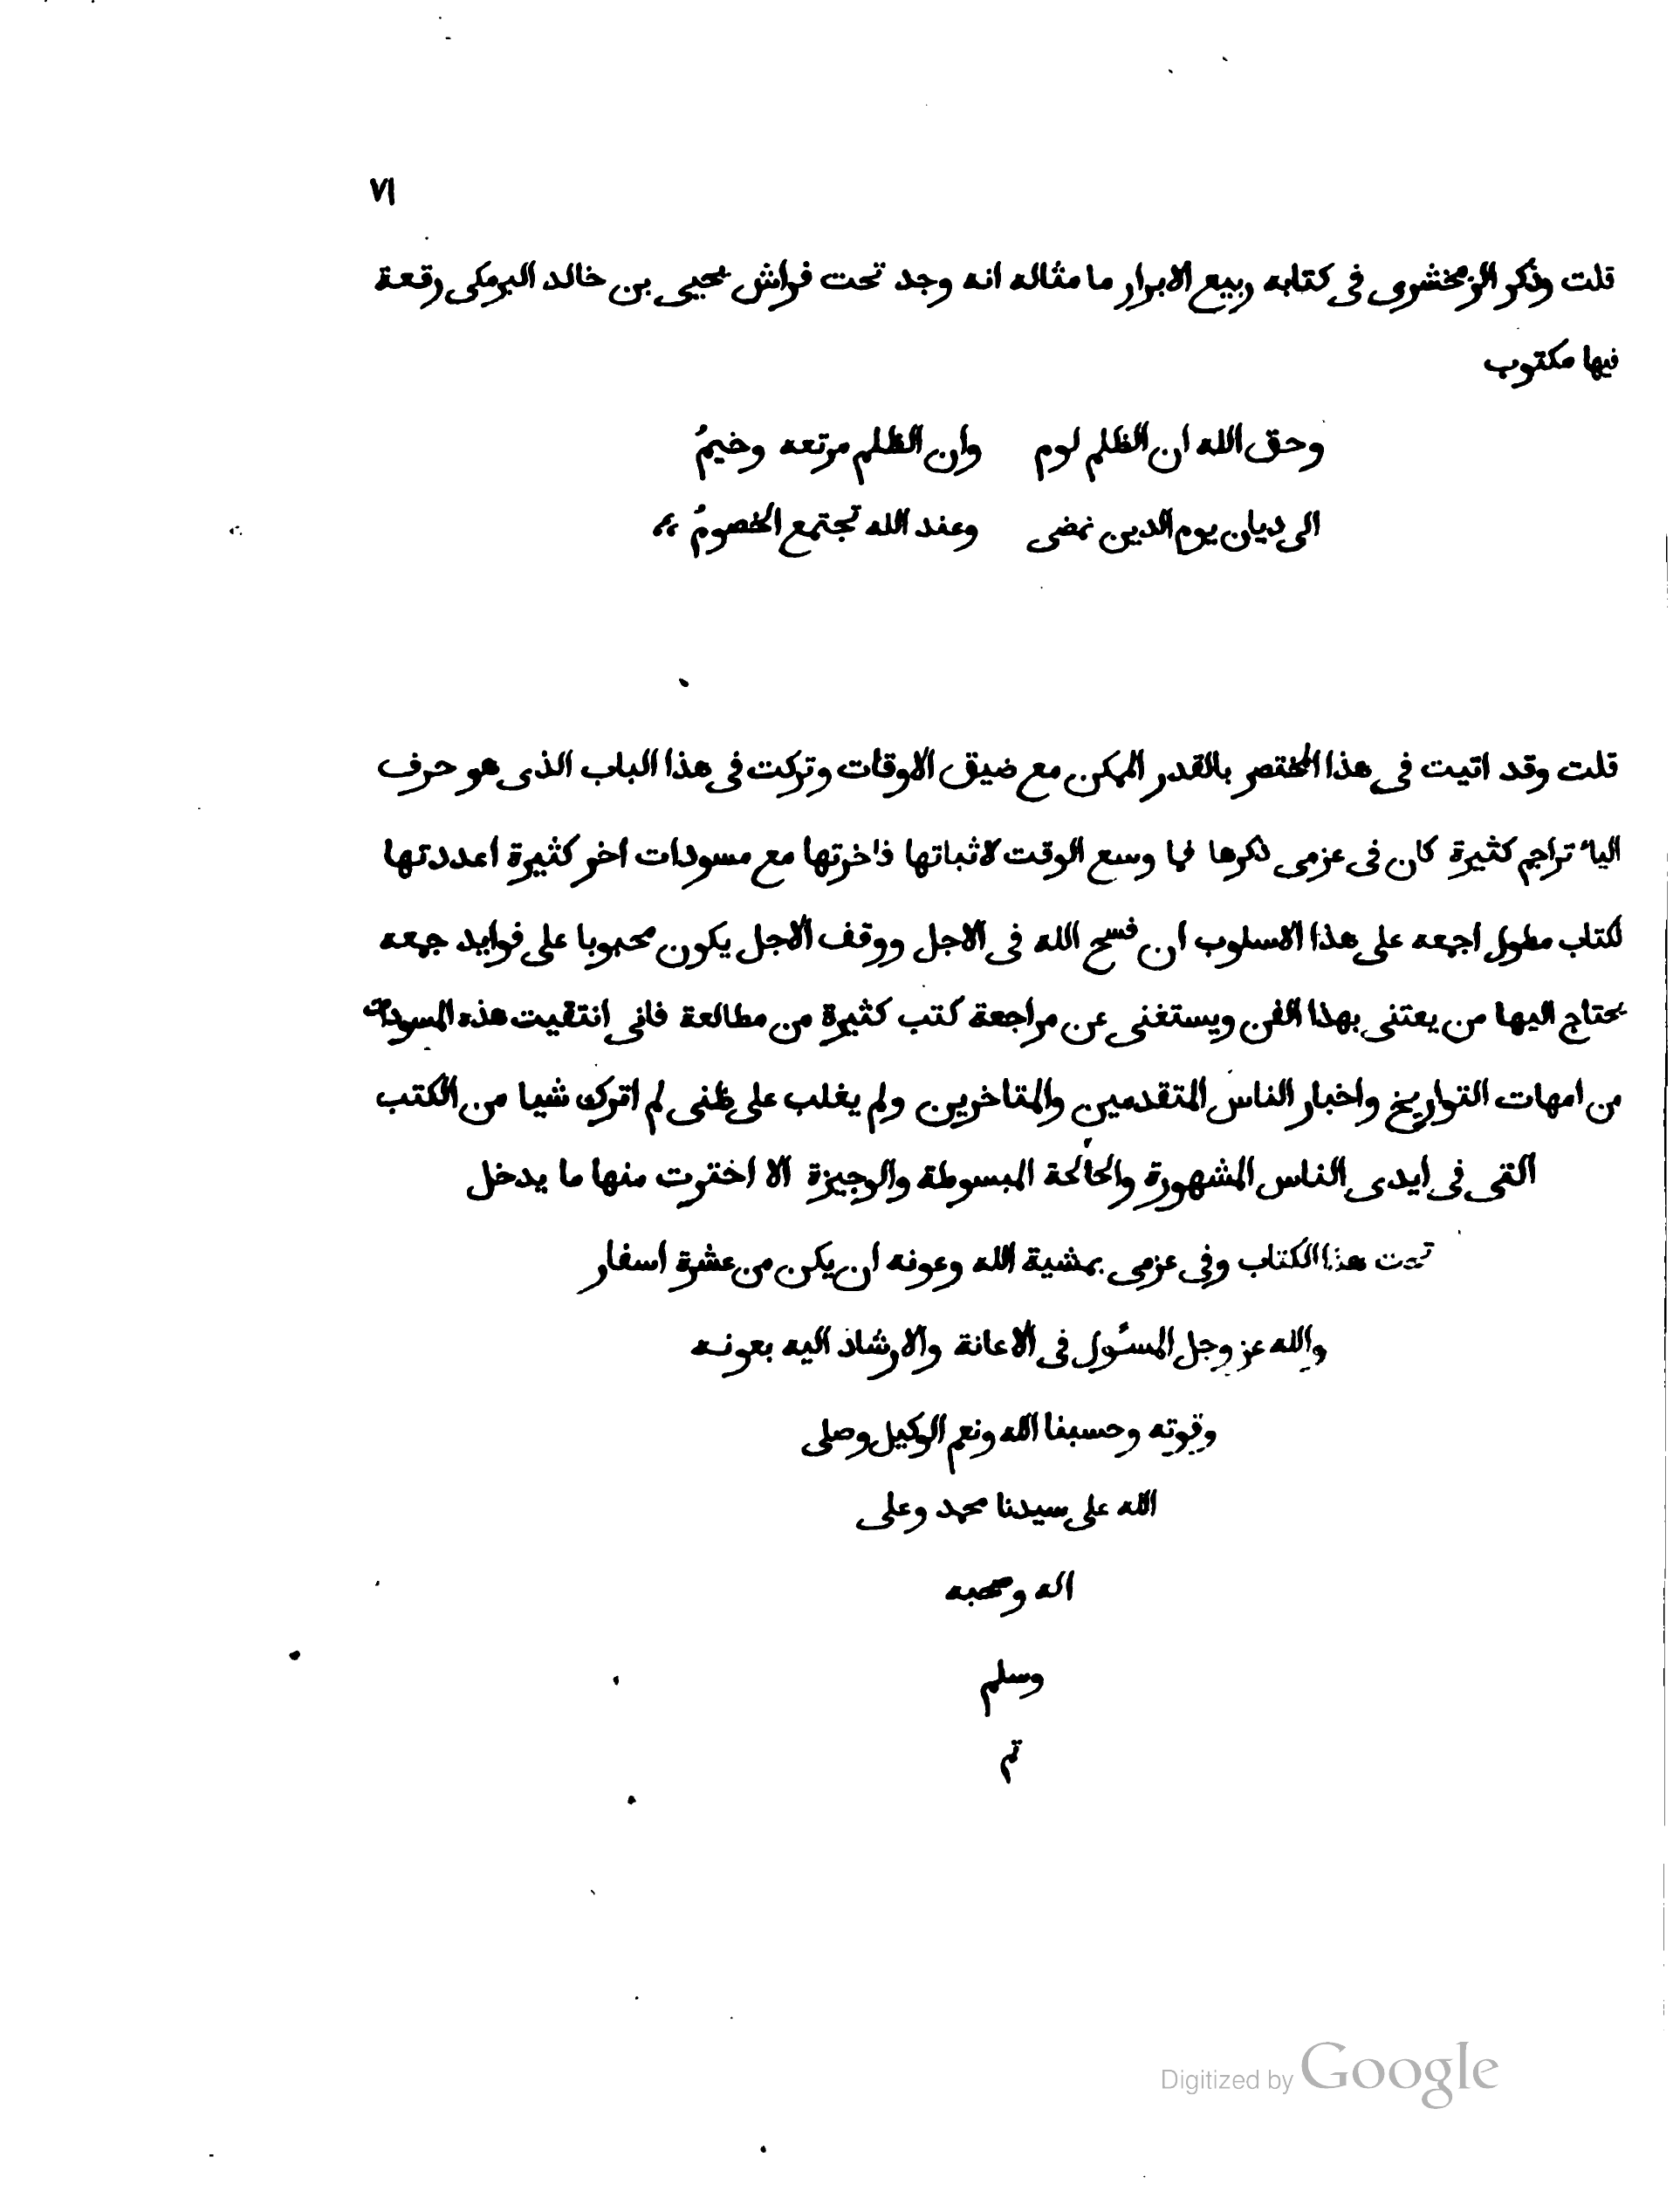 ٧١
قلت وذكر الزمخشرى فى كتابه ربيع الابرار ما مثاله انه وجد تحت فراش يحيى بن خالد البرمكى رقعة
فيها مكتوب
وحق الله ان الظلم لوم وان الظلم مرتعه وخيمُ
الى ديان يوم الدين نمضى وعند الله تجتمع الخصومُ
قلت وقد اتيت فى هذا المختصر بالقدر الممكن مع ضيق الاوقات وتركت فى هذا الباب الذى هو حرف
الياء تراجم كثيرة كان فى عزمى ذكرها فما وسع الوقت لاثباتها فاخرتها مع مسودات اخر كثيرة اعددتها
لكتاب مطول اجمعه على هذا الاسلوب ان فسح الله فى الاجل ووقف الاجل يكون محبوبا على فوايد جمعه
يحتاج اليها من يعتنى بهذا الفن ويستغنى عن مراجعة كتب كثيرة من مطالعة فانى انتقيت هذه المسودات
من امهات التواريخ واخبار الناس المتقدمين والمتاخرين ولم يغلب على ظنى لم اترك شيا من الكتب
التى فى ايدى الناس المشهورة المبسوطة والوجيزة الا اخترت منها ما يدخل
تحت هذا الكتاب وفى عزمى بمشية الله وعونه ان يكن من عشرة اسفار
والله عز وجل المسئول فى الاعانة والارشاد اليه بعونه
وقوته وحسبنا الله ونعم الوكيل وصلى
الله على سيدنا محمد وعلى
اله وصحبه
وسلم
تم
Digitized by Google